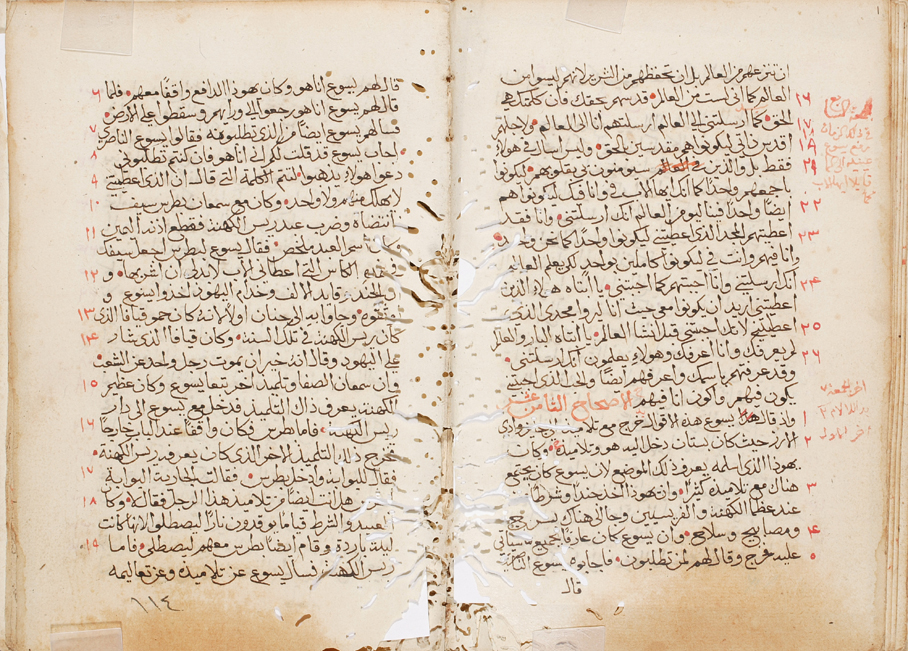 ان تنزعهم من العالم بل ان تحفظهم من الشرير لانهم ليسوا من
١٦ العالم كما اني لست من العالم قدسهم بحقك فان كلمتك هي
١٧ الحق كما ارسلتني الي العالم ارسلتهم انا الي العالم ولاجلهم
اقدس ذاتي ليكونوا هم مقدسين بالحق وليس اسال في هولا
فقط بل والذين يومنون بي بقولهم ليكونوا
باجمعهم واحدًا كما انك ايها الاب في وانا فيك ليكونوا هم
٢٢ ايضًا واحدًا فينا ليومن العالم انك ارسلتني وانا فقد
اعطيتهم المجد الذي اعطيتني ليكونوا واحدًا كما نحن واحد
٢٣ وانا فيهم وانت في ليكونوا كاملين بواحد لكي يعلم العالم
٢٤ انك ارسلتني وانا احببتهم كما احببتني يا ابتاه هولاء الذين
اعطيتني اريد ان يكونوا معي حيث انا ليروا مجدي الذي
٢٥ اعطيتني لانك احببتني قبل انشا العالم يا ابتاه البار والعالم
٢٦ لم يعرفك وانا اعرفك وهولاء يعلمون انك ارسلتني
وقد عرفتهم باسمك واعرفهم ايضًا والحب الذي احببتني
يكون فيهم واكون انا فيهم الاصحاح الثامن عشر
١ واذ قال يسوع هذه الاقوال خرج مع تلاميذه الي عبر وادي
٢ الارز حيث كان بستان دخل اليه هو وتلاميذه وكان
يهوذا الذي اسلمه يعرف ذلك الموضع لان يسوع كان يجتمع
٣ هناك مع تلاميذه كثيرًا وان يهوذا اخذ جندًا وشرطًا
عند عظما الكهنة والفريسيين وجا الي هناك بسرج
٤ ومصابيح وسلاح وان يسوع كان عارفًا بجميع ما ياتي
٥ عليه فخرج وقال لهم لمن تطلبون فاجابوه يسوع الناصري
قال
قال لهم يسوع انا هو وكان يهوذا الدافع واقفًا معهم فلما
٦ قال لهم يسوع انا هو رجعوا الي ورايهم وسقطوا علي الارض
٧ فسالهم يسوع ايضًا من الذي تطلبونه فقالوا يسوع الناصري
٨ اجاب يسوع قد قلت لكم اني انا هو فان كنتم تطلبوني
٩ دعوا هولاء يذهبوا لتتم الكلمة التي قال ان الذي اعطيتني
١٠ لا هلك منهم ولا واحد وكان مع سمعان بطرس سيف
١١ فانتضاه وضرب عبد ريس الكهنة فقطع اذنه اليمين
وكان اسم العبد ملخس فقال يسوع لبطرس اجعل سيفك
١٢ في غمده الكاس التي اعطاني الاب لابد لي ان اشربها و
ان الجند وقايد الالف وخدام اليهود اخذوا يسوع و
١٣ اوثقوه وجاوا به الي حنان اولًا لانه كان حمو قيافا الذي
١٤ كان ريس الكهنة في تلك السنة وكان قيافا الذي شار
علي اليهود وقال انه خير ان يموت رجل واحد عن الشعب
١٥ وان سمعان الصفا وتلميذ اخر تبعا يسوع وكان عظيم
الكهنة يعرف ذاك التلميذ فدخل مع يسوع الي دار
١٦ ريس الكهنة فاما بطرس فكان واقفًا عند الباب خارجًا
خرج ذلك التلميذ الاخر الذي كان يعرفه ريس الكهنة
١٧ فقال للبوابة وادخل بطرس فقالت الجارية البوابة
١٨ لبطرس هل انت ايضًا من تلاميذ هذا الرجل فقال لا وكان
العبيد والشرط قيامًا يوقدون نارًا ليصطلوا لانها كانت
١٩ ليلة باردة وقام ايضًا بطرس معهم ليصطلي فاما
ريس الكهنة فسال يسوع عن تلاميذه وعن تعاليمه
١١٤